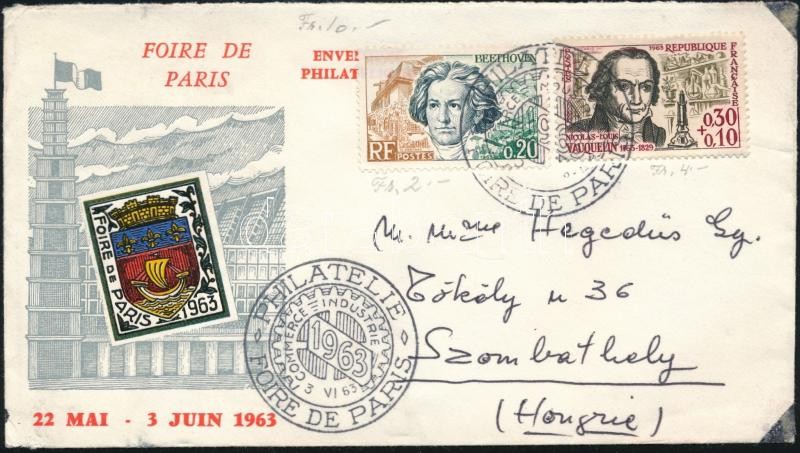 Fr. 10.-
FOIRE DE
PARIS
ENVE
PHILAT
BEETHOVEN
RF POSTES 0.20
1963 REPUBLIQUE FRANÇAISE
0.30
+0.10
NICOLAS-LOUIS
VAUQUELIN 1763-1829
Fr. 2.-
Fr. 4.-
PHILATELIE
FOIRE DE PARIS
M. Mme Hegedüs Gy.
Tököly u 36
Szombathely
(Hongrie)
FOIRE DE PARIS 1963
PHILATELIE
COMMERCE INDUSTRIE
1963
3 VI 63
FOIRE DE PARIS
22 MAI - 3 JUIN 1963